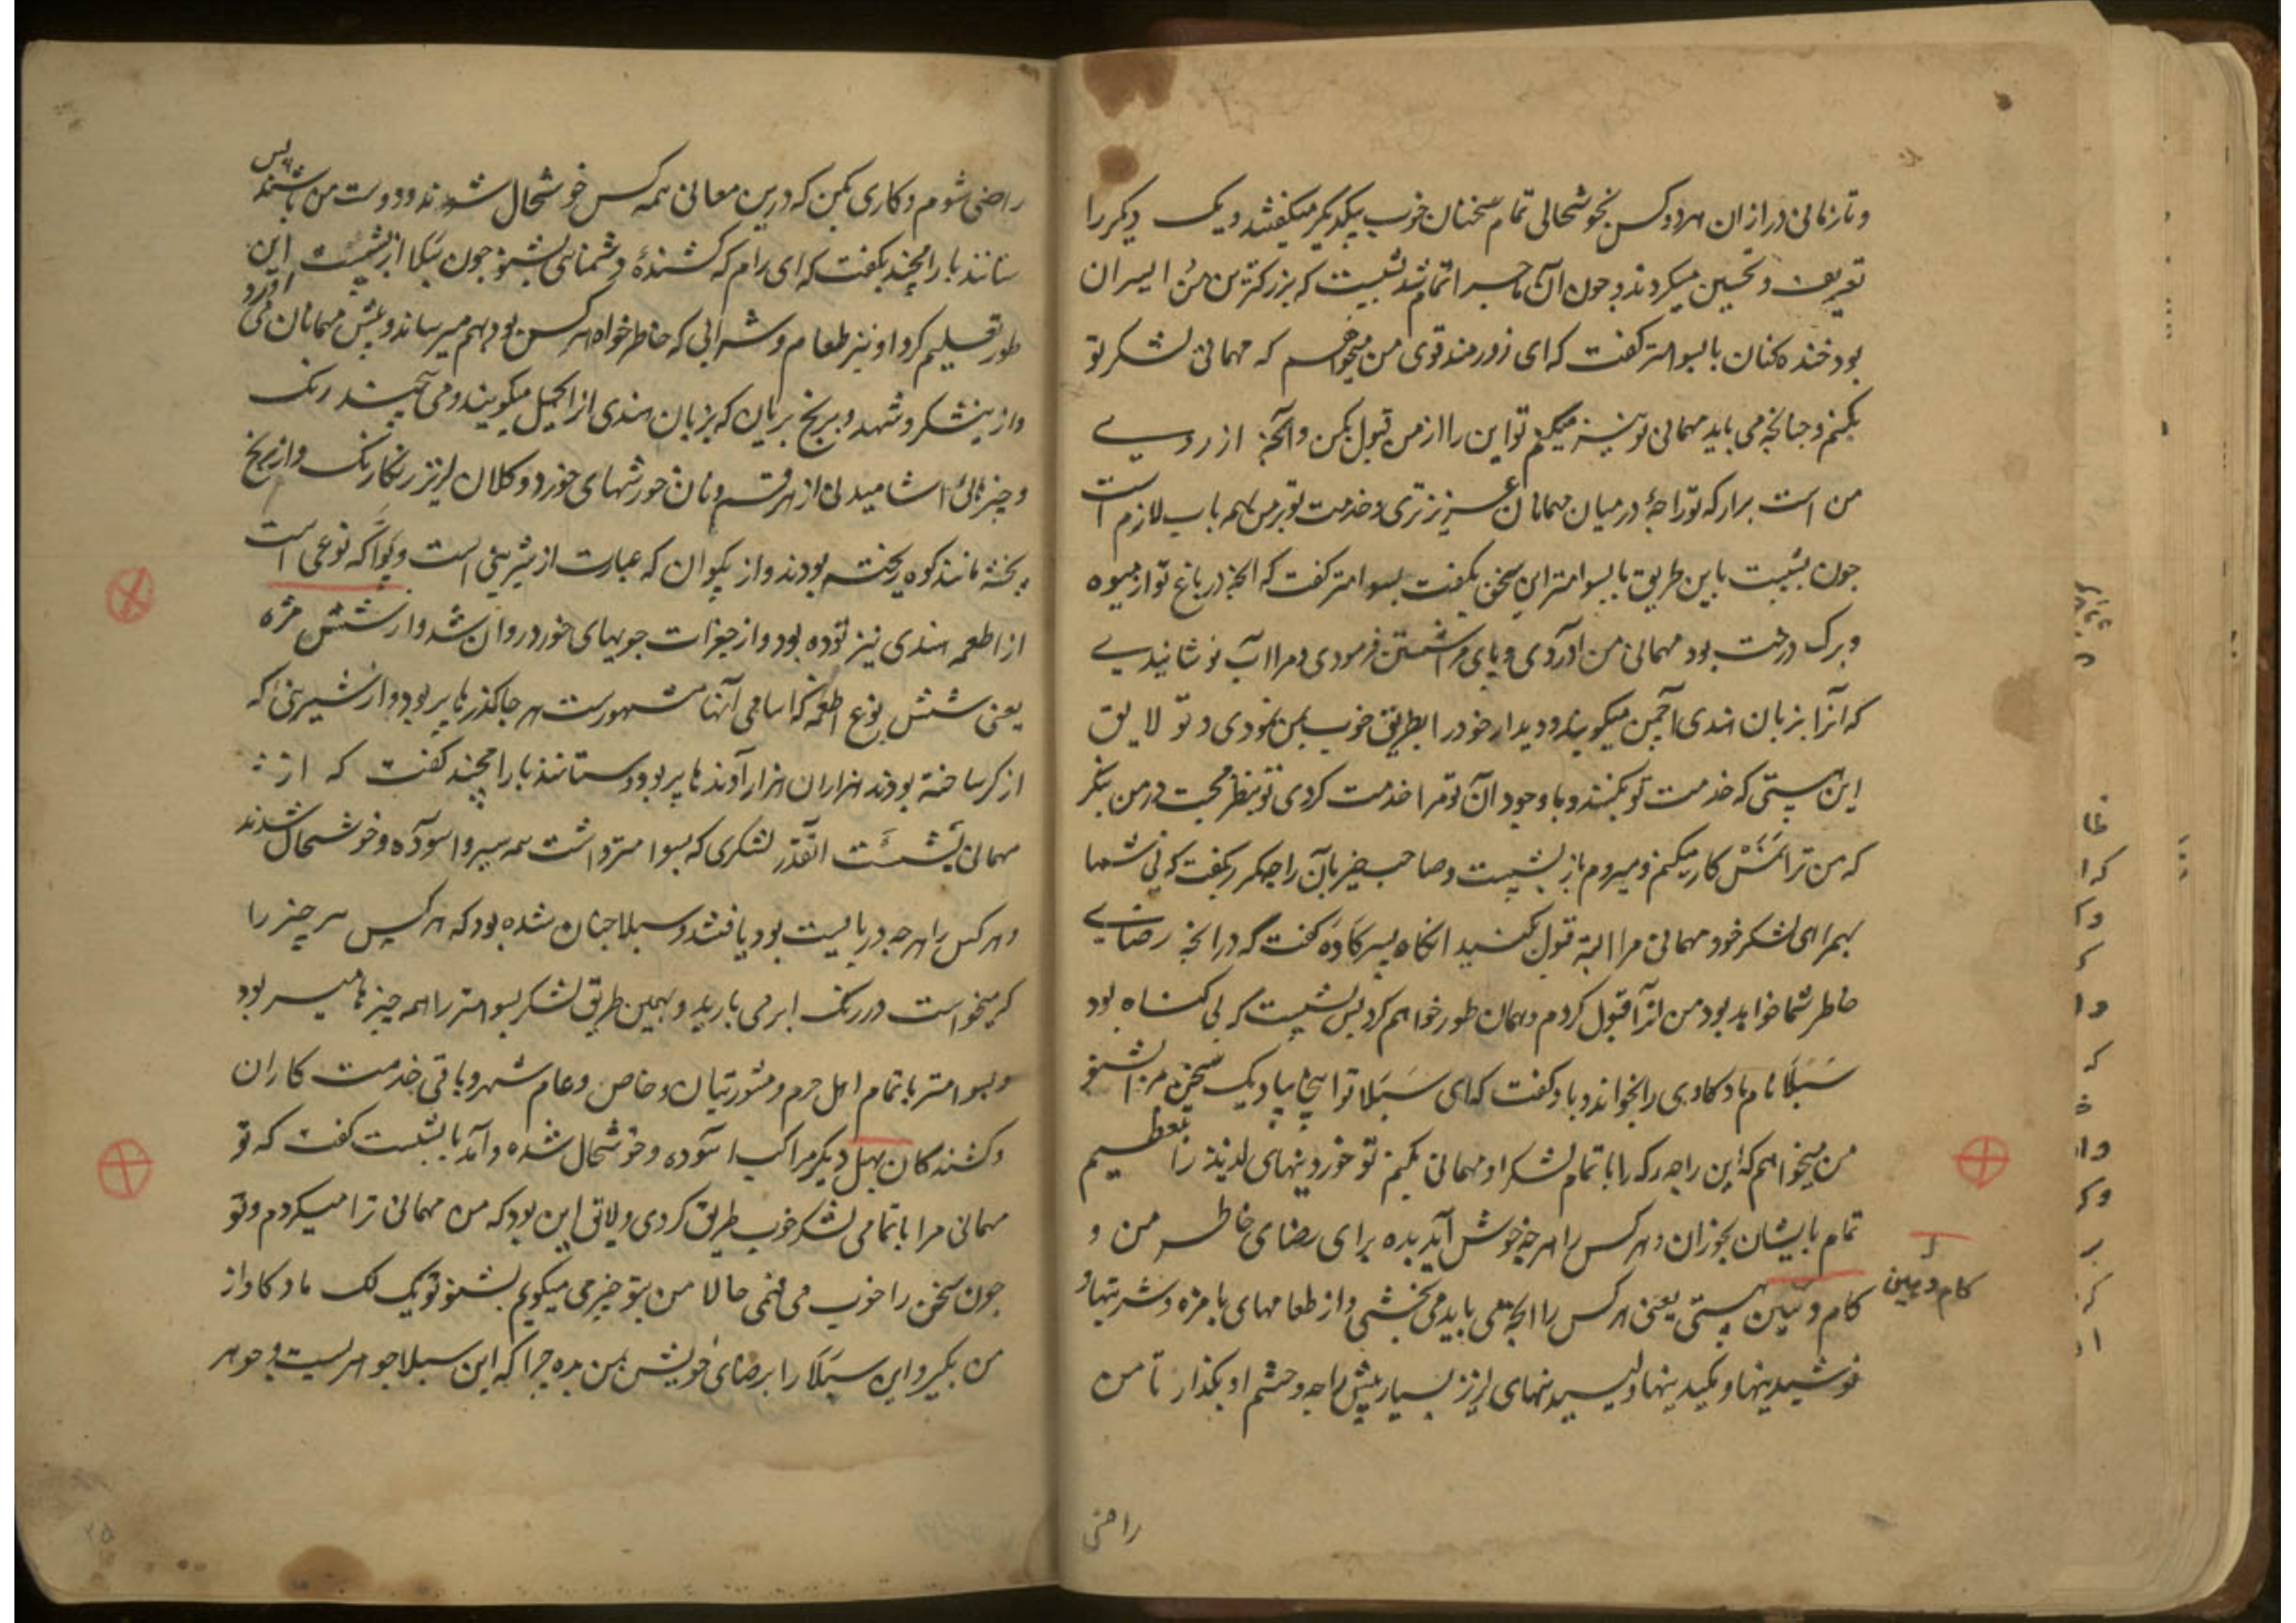 و تا زمانی دراز ان هر دو کس بخوشحالی تمام سخنان خوب بیکدیکر میکفتند و یک دیکر را
تعریف و تحسین میکردند و چون آن ماجرا تمام شد بشیت که بزرکترین
بود خنده کنان با بسوامتر کفت که ای زورمند قوی من میخواهم که مهمانی لشکر تو
بکنم و چنانچه می باید مهمانی تو نیز میکنم تو این را از من قبول بکن و آنچه از روی
من است برار که تو راجهٔ در میان مهمانان عزیزتری و خدمت تو بر من همه باب لازم است
چون بشیت باین طریق با بسوامتر این سخن بکفت بسوامتر کفت که آنچه در باغ تو از میوه
و برک درخت بود مهمانی من آوردی و پای مرا شستن فرمودی و مرا آب نوشانیدی
که آنرا بزبان هندی آچمن میکویند و دیدار خود را بطریق خوب بمن نمودی و تو لایق
این هستی که خدمت تو بکنند و با وجود آن تو مرا خدمت کردی تو بنظر محبت در من بنکر
که من ترا نمش کار میکنم و میروم باز بشیت و صاحب خیر بآن راجه مکرر بکفت که نی شما
بهمراهی لشکر خود مهمانی مرا البته قبول بکنید انکاه پسر کاده کفت که در آنچه رضای
خاطر شما خواهد بود من آنرا قبول کردم و همان طور خواهم کرد پس بشیت که بی کناه بود
سبلا نام ماده کاوی را بخواند و باو کفت که ای سبلا تو اینجا بیا و یک سخن مرا بشنو
من میخواهم که این راجه رکه را با تمام لشکر او مهمانی بکنم تو خوردینهای لذیذ را بتعظیم
تمام بایشان بخوران و هر کس را هر چه خوش آید بده برای رضای خاطر من و
کام دهین هستی یعنی هر کس را آنچه می باید می بخشی و از طعامهای با مزه و شربتها و
نوشیدینها و مکیدینها و لیسیدینهای لزیز بسیار پیش راجه و حشم او بکذار تا من
کام دهین
راضی
راضی شوم و کاری بکن که درین معانی همه کس خوشحال شوند و دوست من باشند پس
ستانند با رامچند بکفت که ای رام که کشندهٔ دشمنانی بشنو چون سبلا از بشیت این
طور تعلیم کرد او نیز طعام و شرابی که خاطرخواه هر کس بود بهم میرساند و پیش مهمانان می آورد
و از نیشکر و شهد و برنج بریان که بزبان هندی انرا کهیل میکویند و می رنک
و چیزهای اشامیدنی از هر قسم و نان خورشهای خورد و کلان لزیز رنکارنک و از برنج
پخته مانند کوه ریخته بودند و از پکوان که عبارت از شیرینی است و پوا که نوعی است
از اطعمه هندی نیز توده بود و از جغرات جویهای خورد روان شد و از شش مزه
یعنی شش نوع اطعمه که اسامی آنها مشهورست هر جا کذرها پر بود و از شیرینی که
از کر ساخته بودند هزاران هزار آوندها پر بود و ستانند با رامچند کفت که از
مهمانی بشست انقدر لشکری که بسوامتر داشت همه سیر و اسوده و خوشحال شدند
و هر کس را هر چه دربایست بود یافتند و سبلا چنان شده بود که هر کس هر چیز را
که میخواست در رنک ابر می بارید و بهمین طریق لشکر بسوامتر را همه چیزها میسر بود
و بسوامتر با تمام اهل حرم و مشورتیان و خاص و عام شهر و باقی خدمت کاران
و کشندکان بهل و دیکر مراکب اسوده و خوشحال شده و آمد با بشست کفت که تو
مهمانی مرا با تمامی لشکر خوب طریق کردی و لایق این بود که من مهمانی ترا میکردم و تو
چون سخن را خوب می فهمی حالا من بتو چیزی میکویم بشنو تو یک لک ماده کاو از
من بکیر و این سبلا را برضای خویش بمن بده چرا که این سبلا جواهریست و جوهر